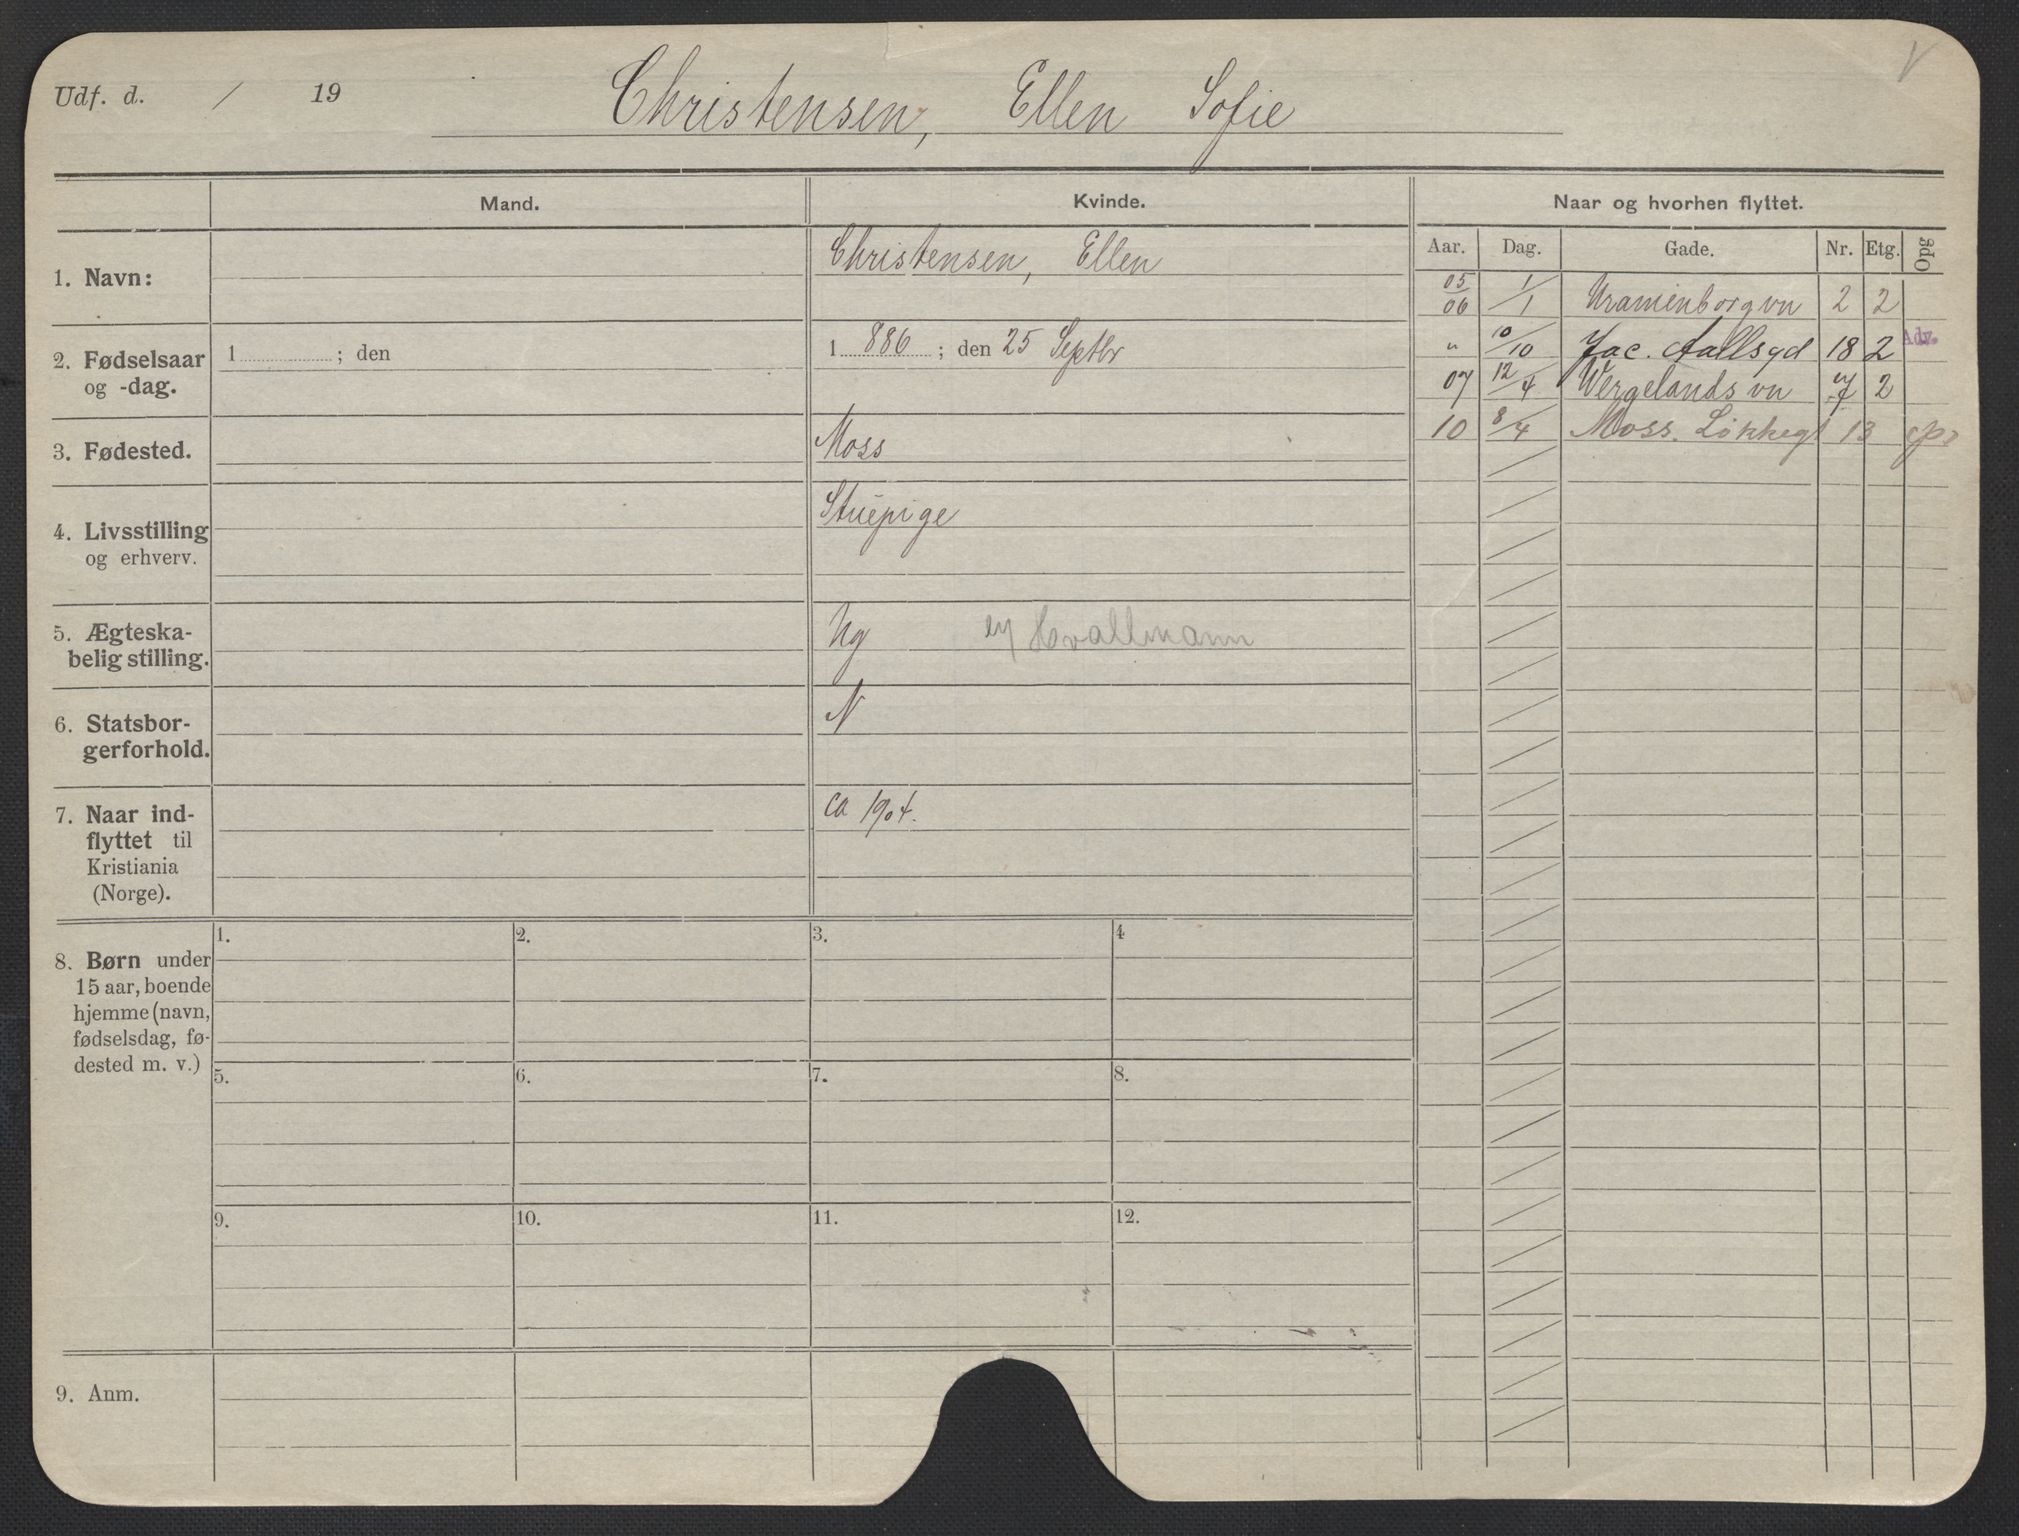 Udf. d. / 19
Christensen, Ellen Sofie
Mand.
Kvinde.
Naar og hvorhen flyttet.
Aar. Dag. Gade. Nr. Etg. Opg
1. Navn:
Christensen, Ellen
05/06 1/1 Uranienborgvn 2 2
" 10/10 Jac. Aallsgd 18 2 Adv.
07 12/4 Wergelandsvn 7 2
10 8/4 Moss. Løkkegt 13
2. Fødselsaar
og -dag.
1 ; den
1 886 ; den 25 Septbr
3. Fødested.
Moss
4. Livsstilling
og erhverv.
Stuepige
5. Ægteska-
belig stilling.
Ug Hvallmann
6. Statsbor-
gerforhold.
N
7. Naar ind-
flyttet til
Kristiania
(Norge).
ca 1904.
8. Børn under
15 aar, boende
hjemme (navn,
fødselsdag, fø-
dested m. v.)
1. 2. 3. 4
5. 6. 7. 8.
9. 10. 11. 12.
9. Anm.